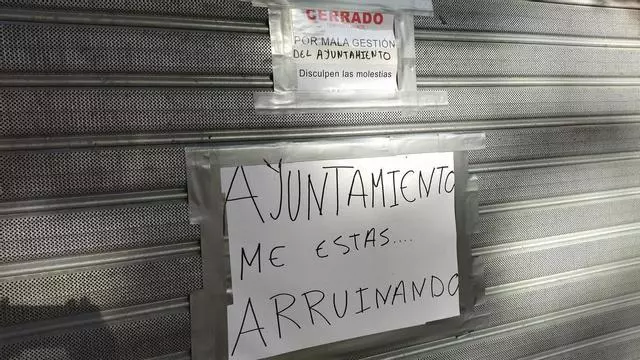 CERRADO
POR MALA GESTIÓN
DEL AYUNTAMIENTO
Disculpen las molestias
AYUNTAMIENTO
ME ESTAS....
ARRUINANDO